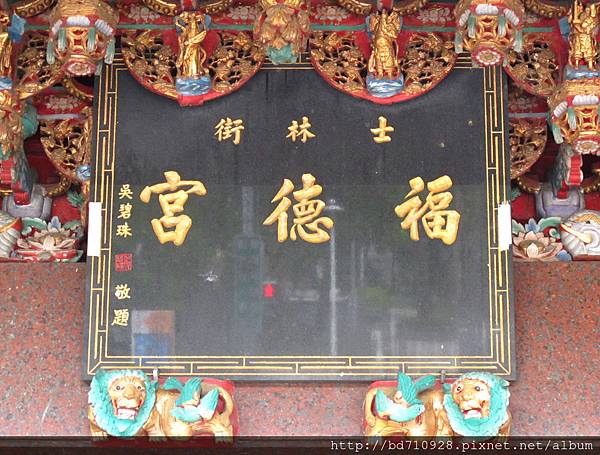 士林街
福德宮
吳碧珠敬題
http://bd710928.pixnet.net/album